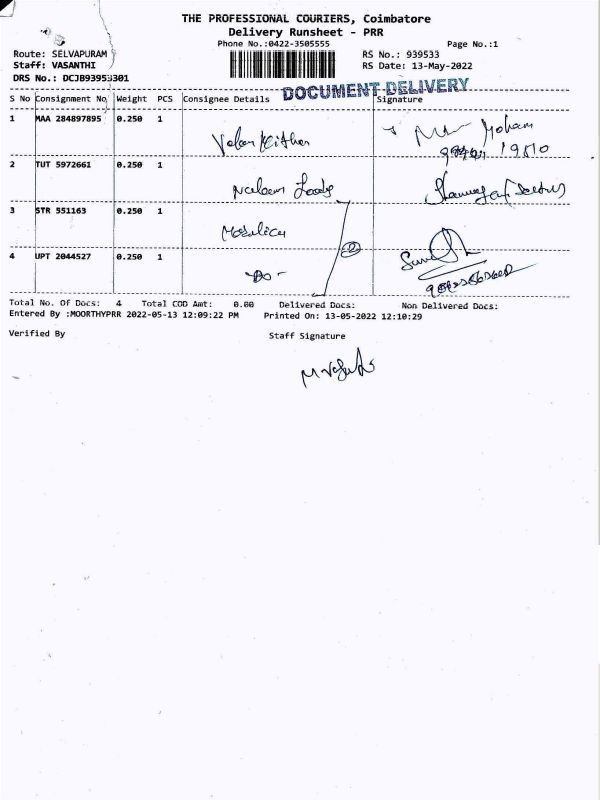 THE PROFESSIONAL COURIERS, Coimbatore
Delivery Runsheet - PRR
Phone No.:0422-3505555
Page No.:1
Route: SELVAPURAM
RS No.: 939533
Staff: VASANTHI
RS Date: 13-May-2022
DRS No.: DCJB93953301
DOCUMENT DELIVERY
S No Consignment No Weight PCS Consignee Details Signature
1 MAA 284897895 0.250 1
Mohan
2 TUT 5972661 0.250 1
3 STR 551163 0.250 1
4 UPT 2044527 0.250 1
-Do-
Total No. Of Docs: 4 Total COD Amt: 0.00 Delivered Docs: Non Delivered Docs:
Entered By :MOORTHYPRR 2022-05-13 12:09:22 PM Printed On: 13-05-2022 12:10:29
Verified By Staff Signature